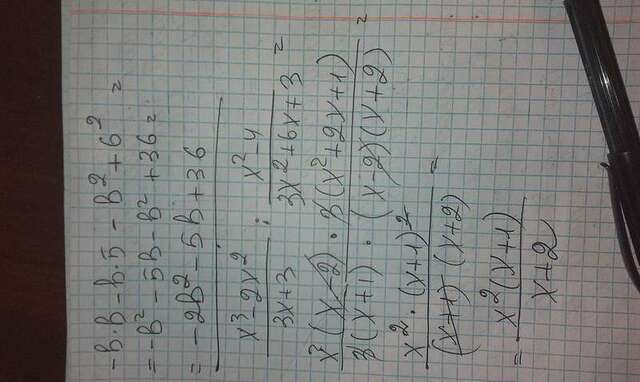 -b·b-b·5-b²+6²=
=-b²-5b-b²+36=
=-2b²-5b+36
x³-2x²/3x+3 : x²-4/3x²+6x+3 =
x²(x-2)·3(x²+2x+1)/3(x+1)·(x-2)(x+2) =
x²·(x+1)²/(x+1)(x+2) =
= x²(x+1)/x+2